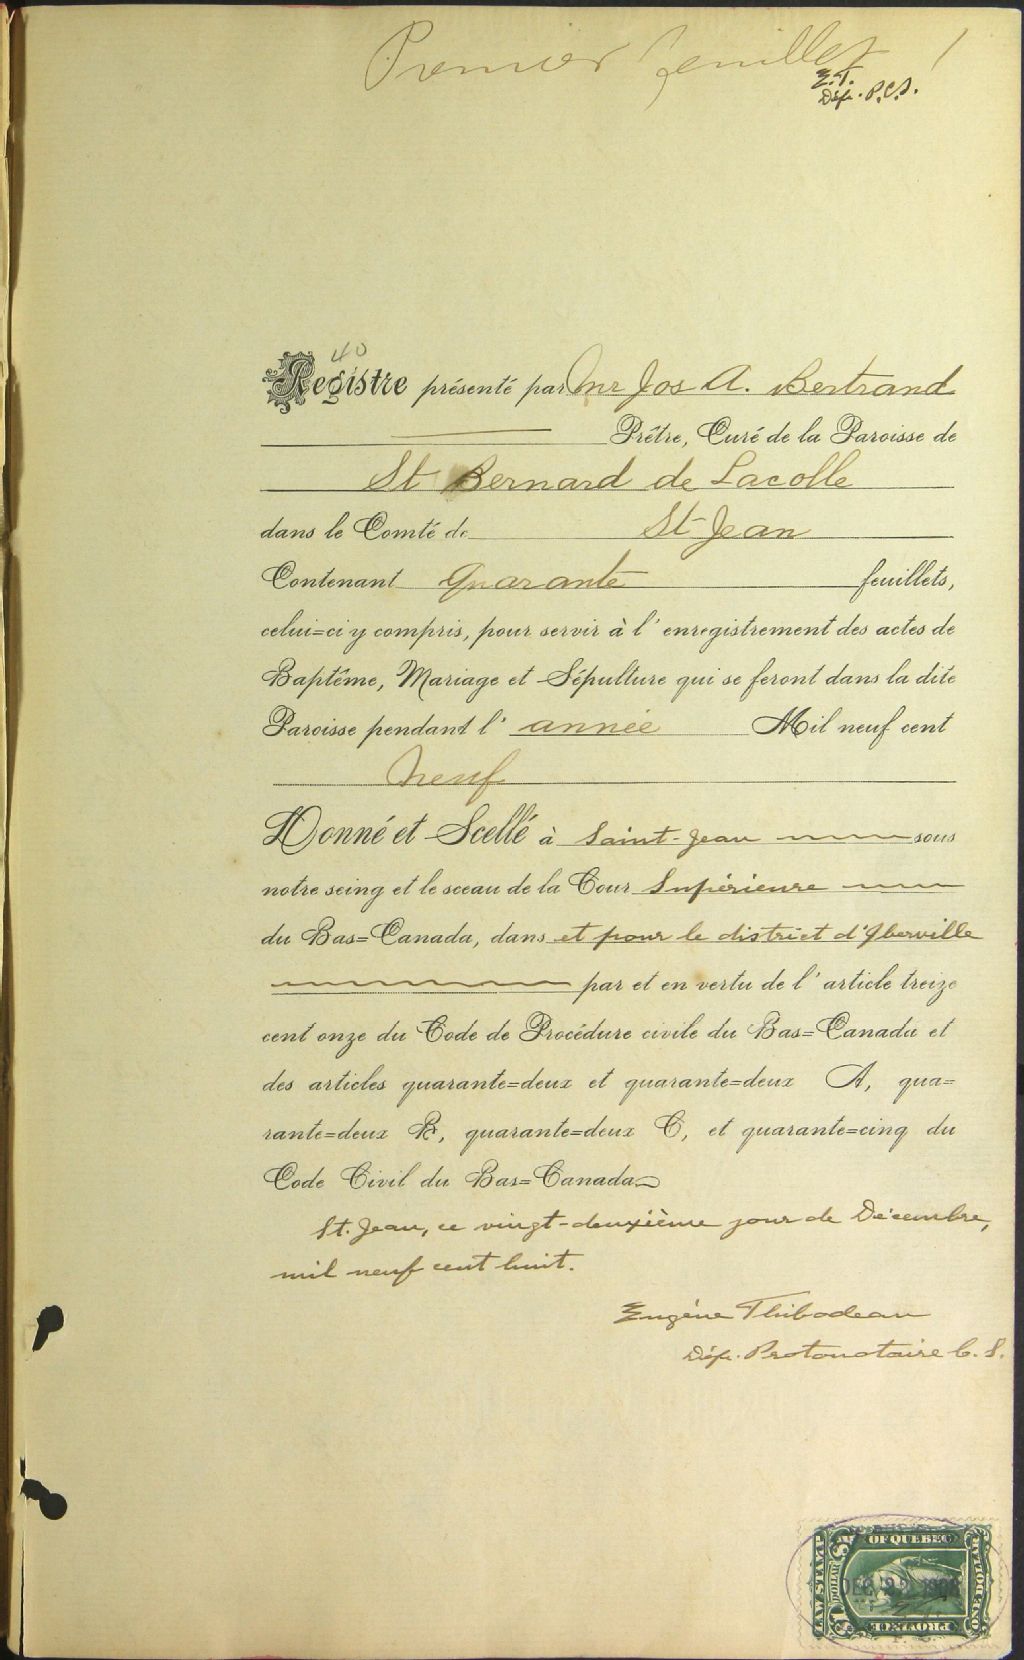 Premier feuillet 1
E.T.
Dép. P.C.S.
40
Registre présenté par Mr Jos A. Bertrand
Prêtre, Curé de la Paroisse de
St Bernard de Lacolle
dans le Comté de St Jean
Contenant Quarante feuillets,
celui=ci y compris, pour servir à l'enregistrement des actes de
Baptême, Mariage et Sépulture qui se feront dans la dite
Paroisse pendant l'année Mil neuf cent
Neuf
Donné et Scellé à Saint-Jean sous
notre seing et le sceau de la Cour Supérieure
du Bas=Canada, dans et pour le district d'Iberville
par et en vertu de l'article treize
cent onze du Code de Procédure civile du Bas=Canada et
des articles quarante=deux et quarante=deux A, qua=
rante=deux B, quarante=deux C, et quarante=cinq du
Code Civil du Bas=Canada
St. Jean, ce vingt-deuxième jour de Décembre,
mil neuf cent huit.
Eugène Thibodeau
Dép. Protonotaire C. S.
OF QUEBEC
LAW STAMP
$1 DOLLAR
DEC 22 1908
ONE DOLLAR
PROVINCE